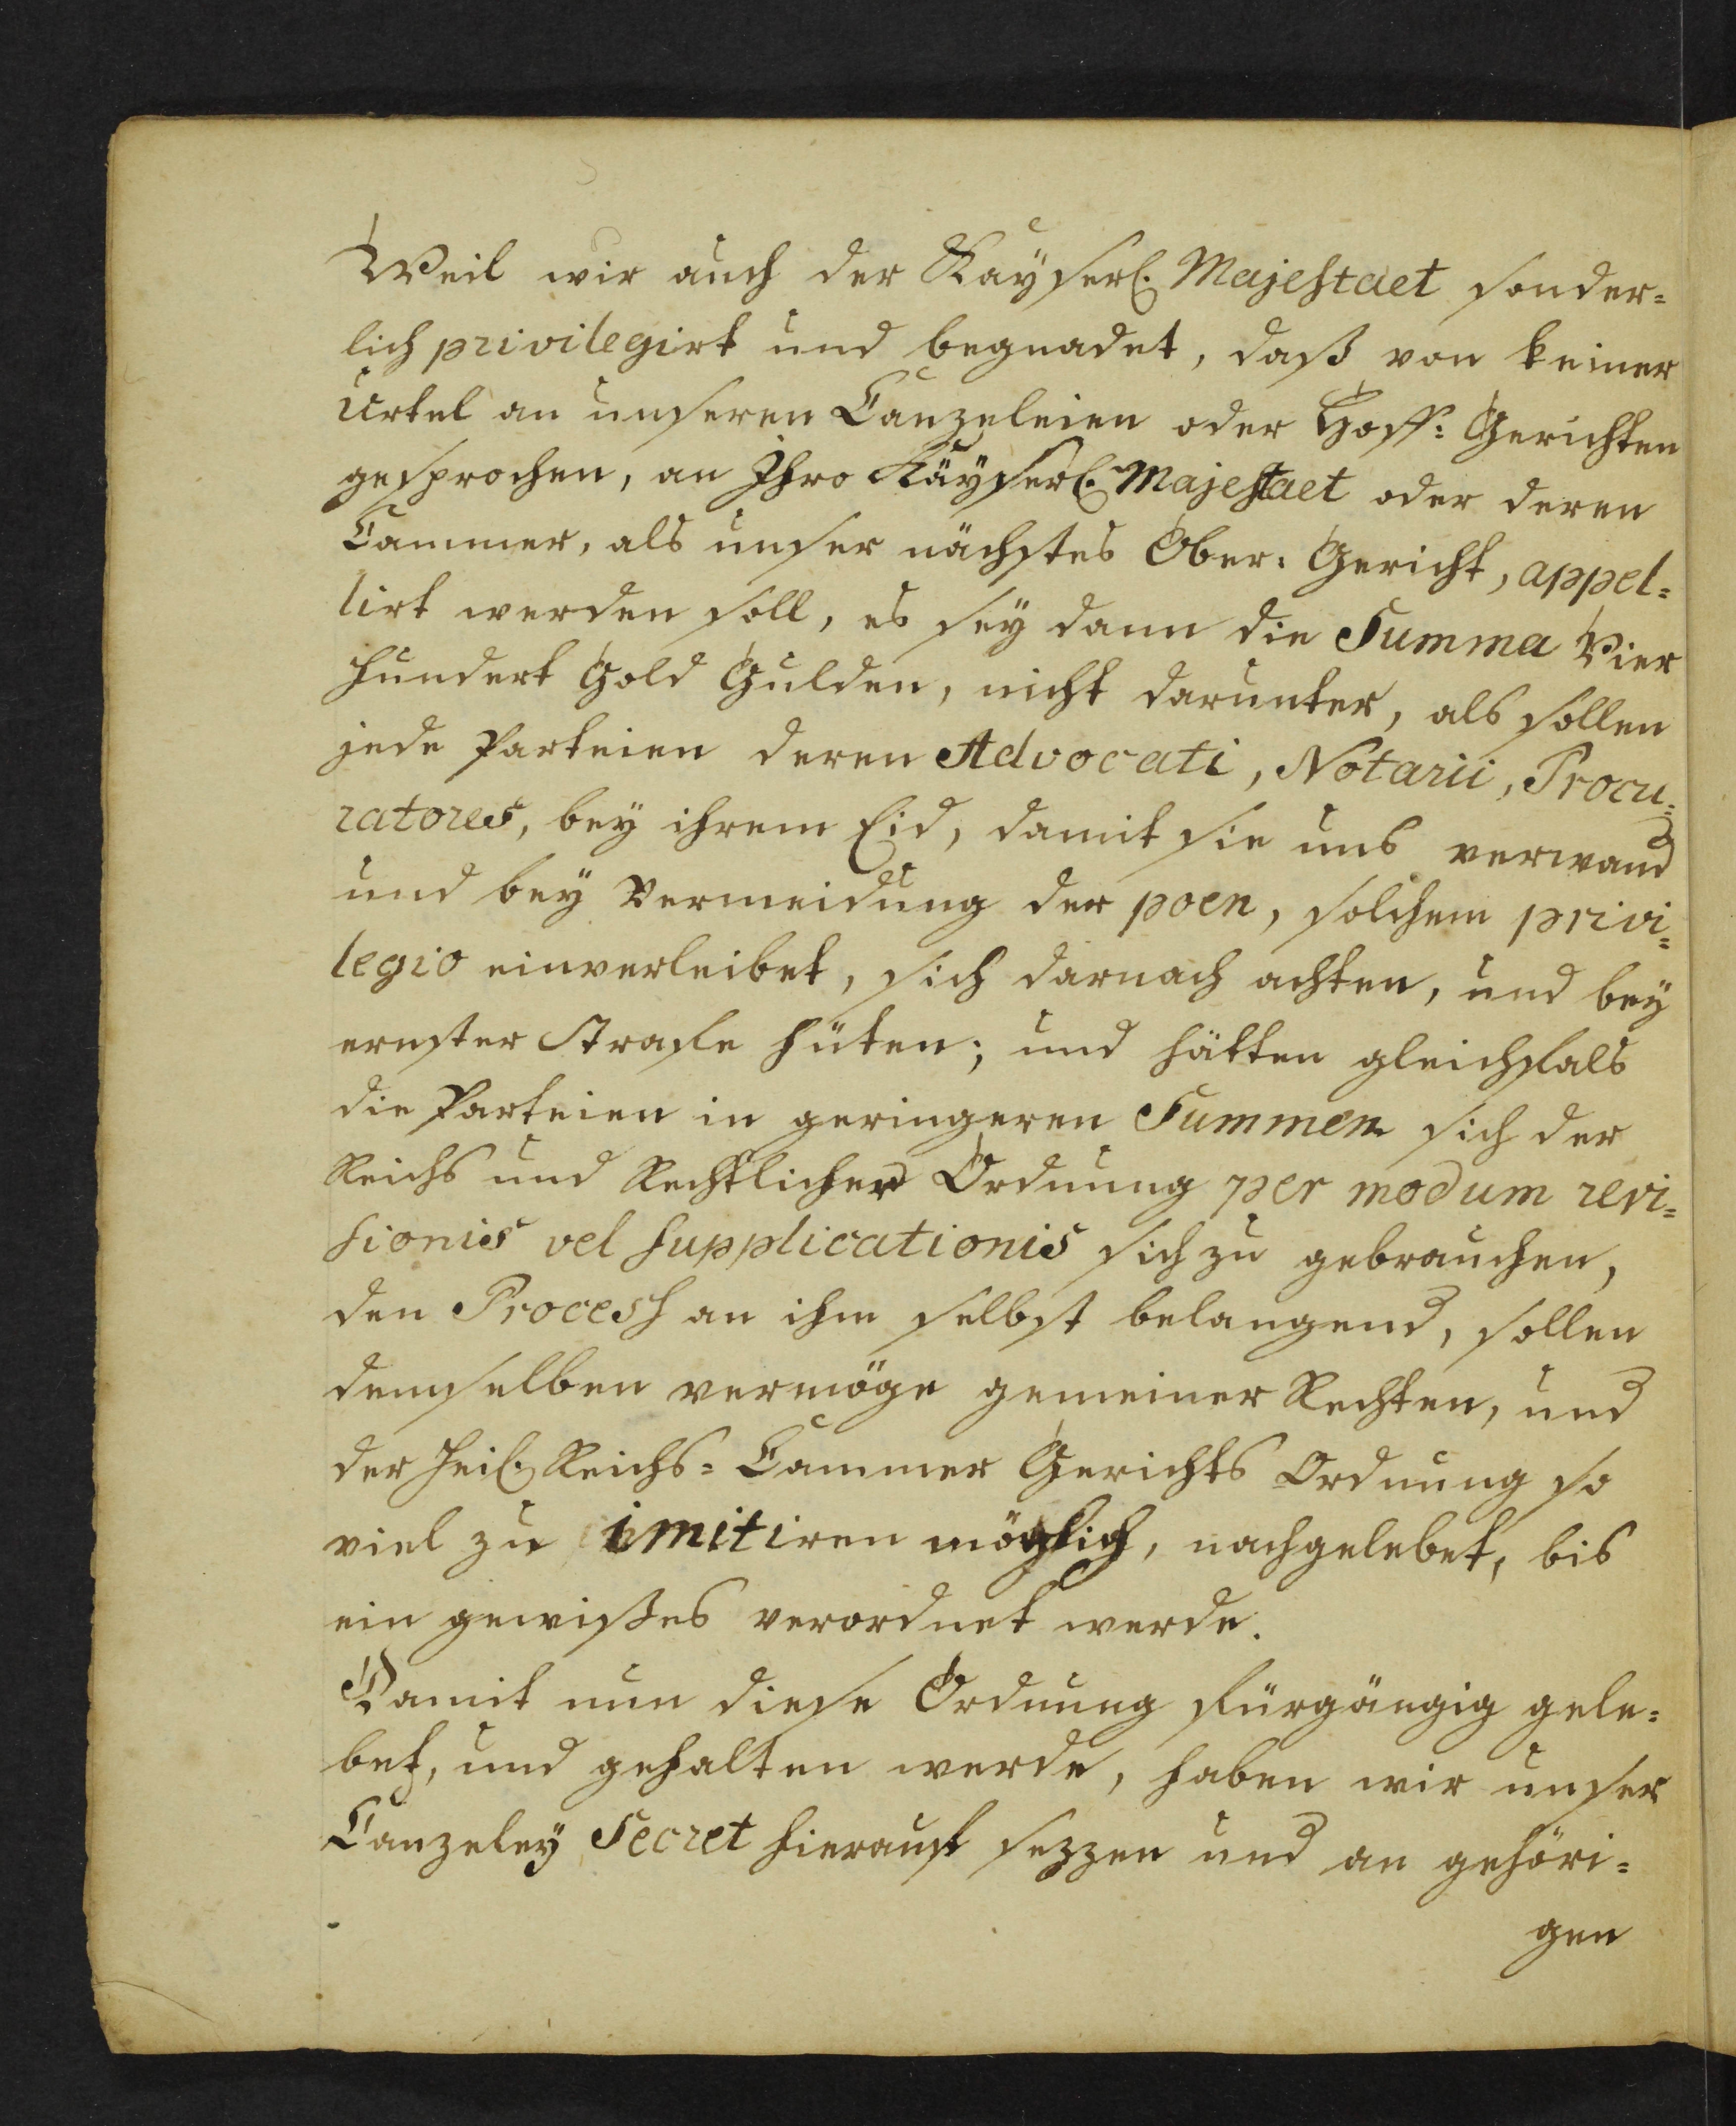 Weil wir auch der Kayserl. Majestaet sonder=
lich privilegirt und begnadet, daß von keiner
Urtel an unseren Canzeleien oder Hoff= Gerichten
gesprochen, an Ihro Käyserl. Majestaet oder deren
Cammer, als unser nächstes Ober= Gericht, appel=
lirt werden soll, es sey dann die Summa Vier
hundert Gold Gulden, nicht darunter, als sollen
jede Parteien deren Advocati, Notarii, Procu=
ratores, bey ihrem Eid, damit sie uns verwand
und bey Vermeidung der poen, solchem privi=
legio einverleibet, sich darnach achten, und bey
ernster Strafe hüten; und hätten gleichfals
die Parteien in geringeren Summen sich der
Reichs und Rechtlicher Ordnung per modum revi=
sionis vel supplicationis sich zu gebrauchen,
den Process an ihm selbst belangend, sollen
demselben vermöge gemeiner Rechten, und
der Heil. Reichs= Cammer Gerichts Ordnung so
viel zu imitiren möglich, nachgelebet, bis
ein gewißes verordnet werde.
Damit nun diese Ordnung fürgängig gele=
bet, und gehalten werde, haben wir unser
Canzeley Secret hierauf sezzen und an gehöri=
gen